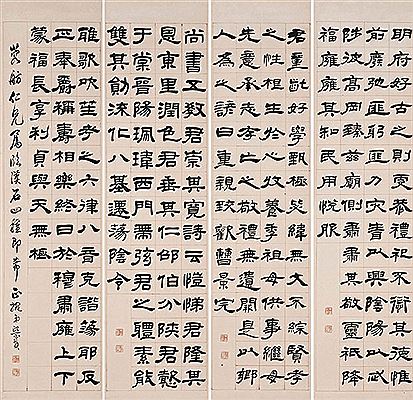 明府好古之則虔恭禮祀不愆其德惟
前廢弛匪躬匪力災眚以興陰陽以忒
陟彼高岡臻茲廟側肅肅其敬靈祇降
福雍雍其和民用悅服
君童齔好學甄極毖緯無文不綜賢孝
之性根生於心收養季祖母供事繼母
先意承志存亡之敬禮無遺闕是以鄉
人為之諺曰重親致歡曹景完
尚書五教君崇其寬詩云愷悌君隆其
恩東里潤色君垂其仁邵伯分陝君懿
于棠晉陽珮瑋西門帶弦君之體素能
雙其勳流化八基遷蕩陰令
雅歌吹笙考之六律八音克諧蕩邪反
正奉爵稱壽相樂終日於穆肅雍上下
蒙福長享利貞與天無極
舫仁兄屬臨漢石四種即希正